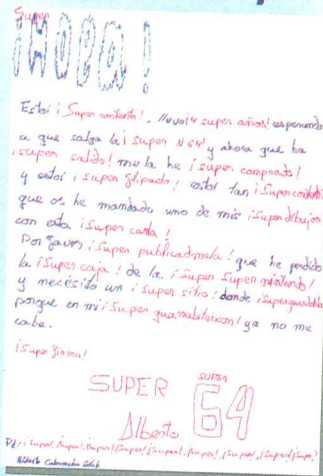 Super
¡HOLA!
Estoi ¡Super contento!, llevo 4 super años! esperando
a que salga la ¡super N64! y ahora que ha
¡super salido! me la he ¡super comprado!
y estoi ¡super flipado! estoi tan ¡Super contento!
que os he mandado uno de mis ¡Super dibujos
con esta ¡Super carta!
Por favor ¡Super publicadmela! que he perdido
la ¡Super caja! de la ¡Super Super nintendo!
y necesito un ¡super sitio! donde ¡Superguardarla
porque en mi ¡Super ya no me
cabe.
¡Super firma!
SUPER SUPER
64
Alberto
Pd: ¡Super!, ¡Super!, ¡Super!, ¡Super!, ¡Super!, ¡Super!, ¡Super!, ¡Super!, ¡Super!
Alberto